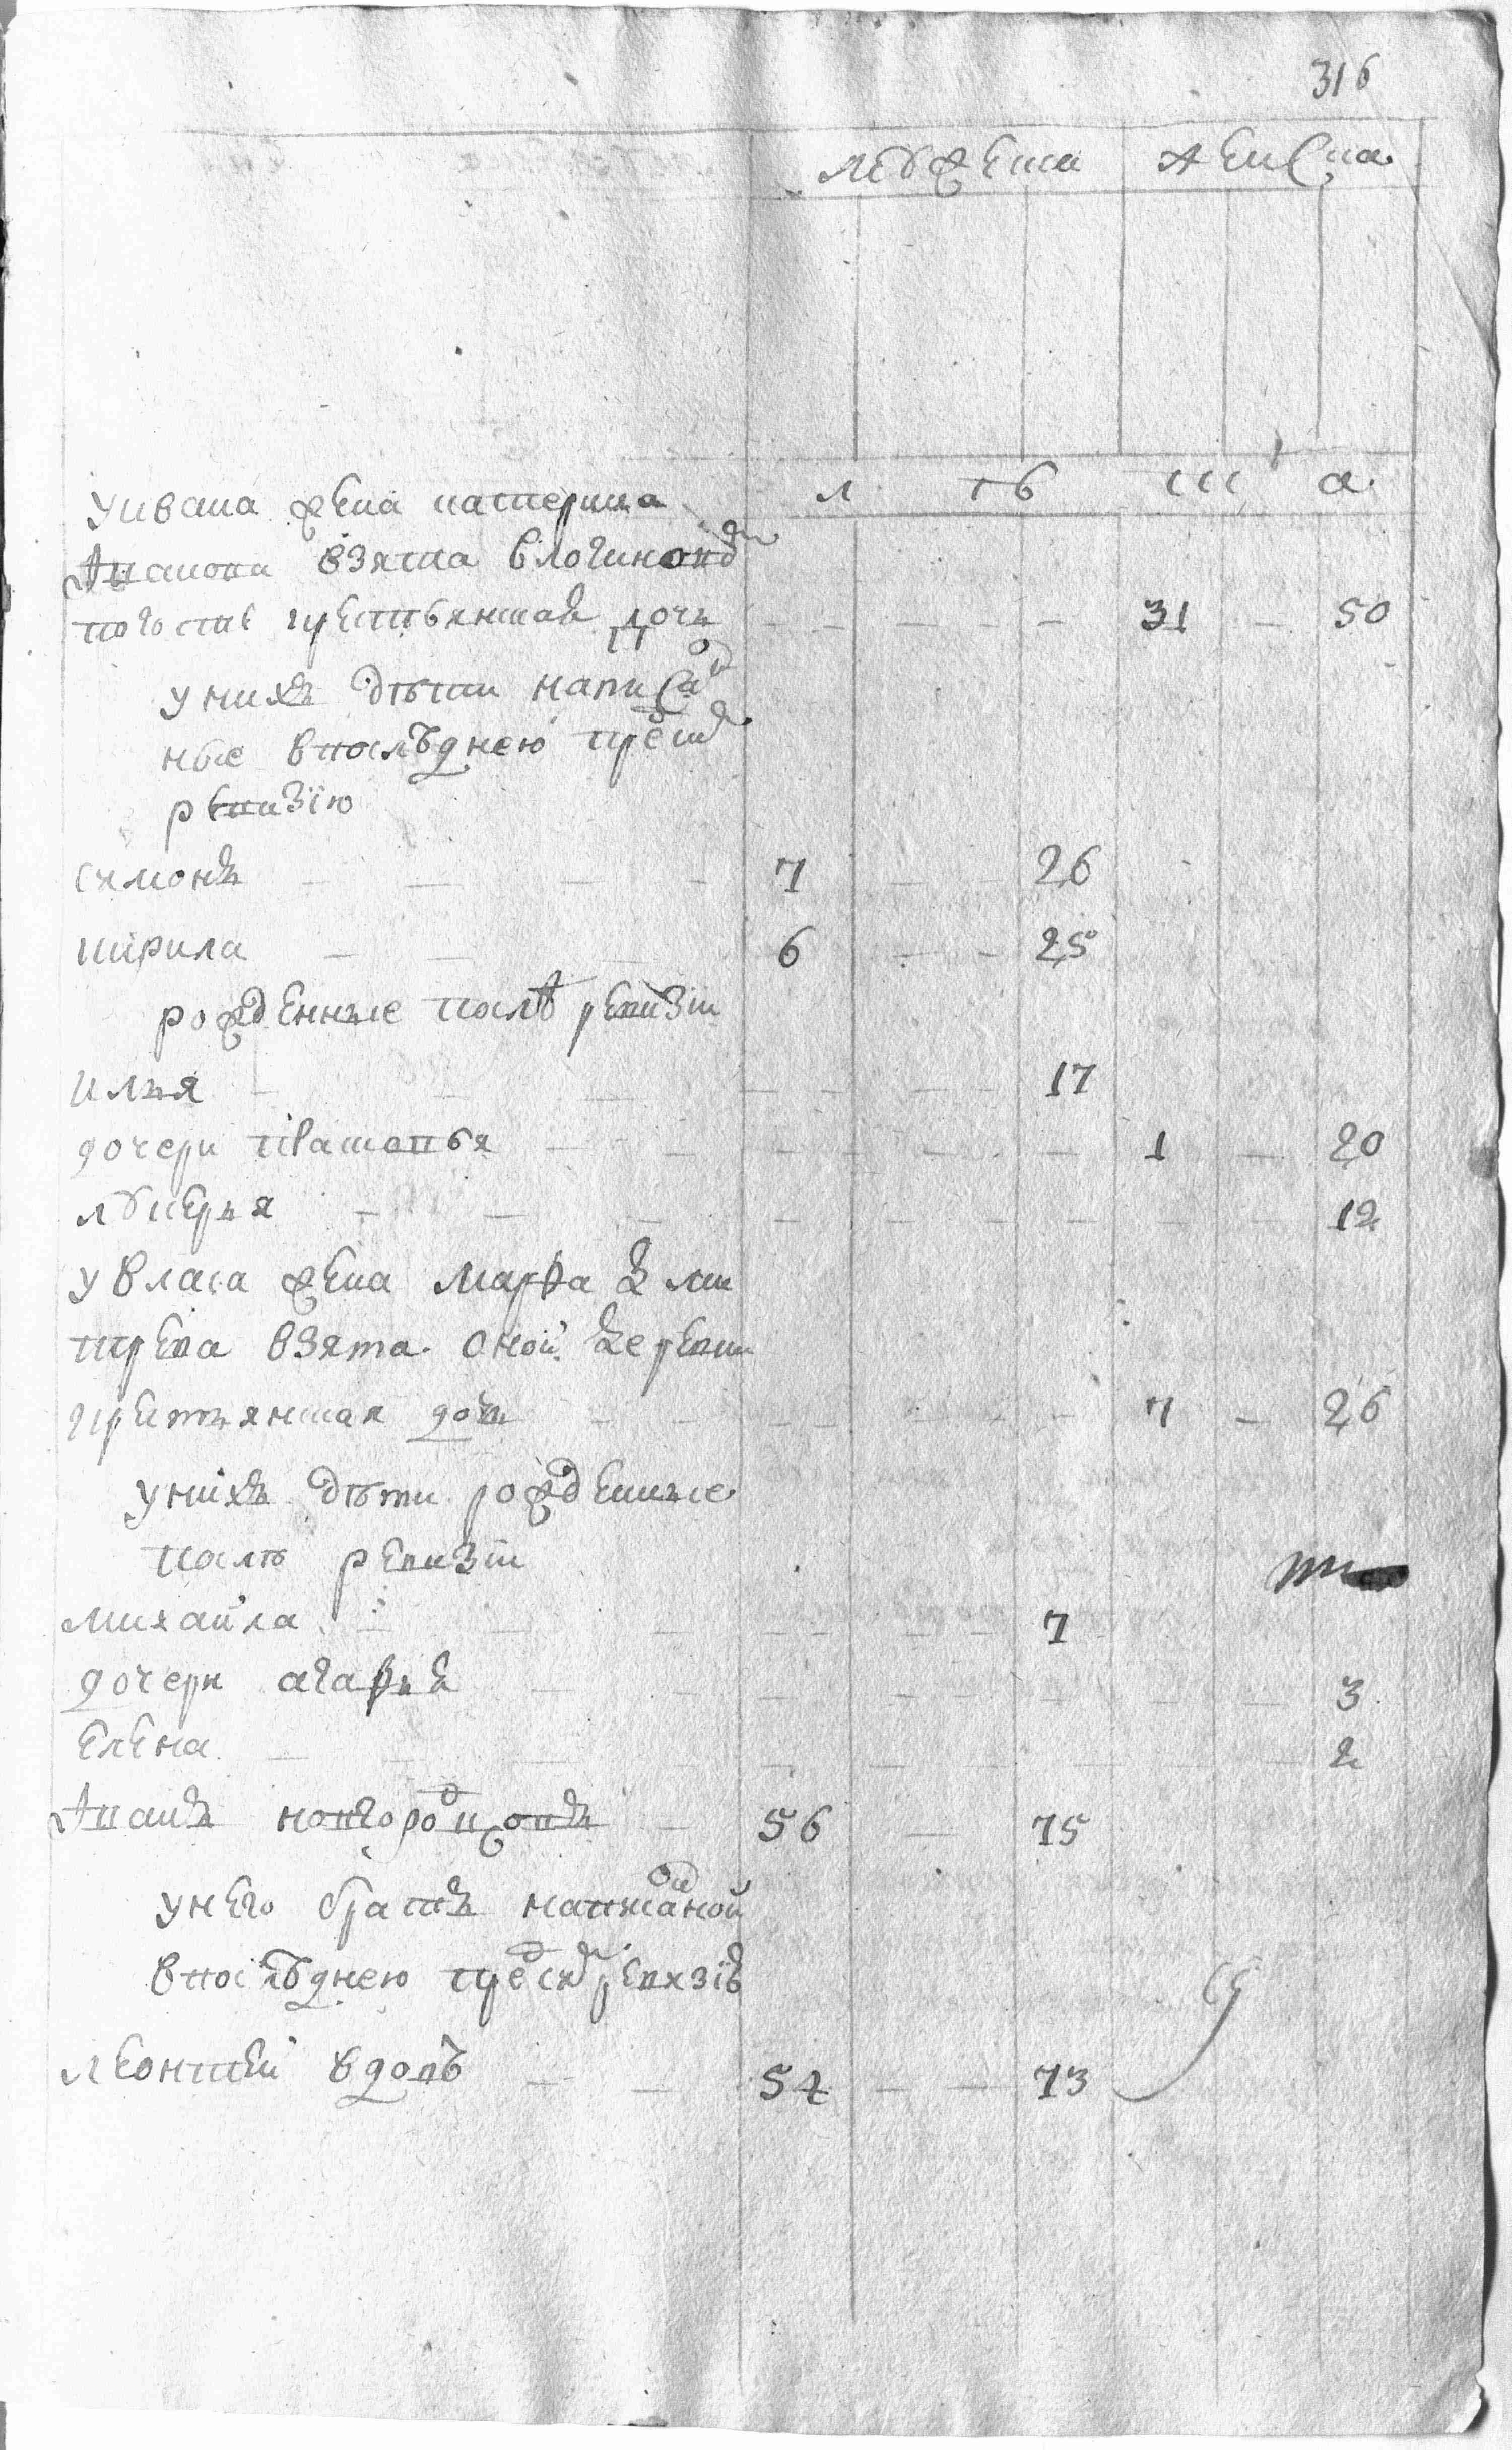 316
мужеска женска
л тъ ш а
у ивана жена катерина
иванова взята влочинско
погосте крестьянская дочь 31 50
у нихъ дѣти написан
ные впослѣднею пред сею
ревизїю
симонъ 7 26
кирила 6 25
рожденные послѣ ревизїи
илья 17
дочери 1 20
лукерья 12
у власа жена марфа дми
трева взята оной деревни
крестьянская дочь 7 26
у нихъ дѣти рожденные
послѣ ревизїи
михаила 7
дочери агафья 3
елена 2
иванъ 56 75
у него братъ написаной
впослѣднею пред сею ревизїю
леонтей вдовъ 54 73